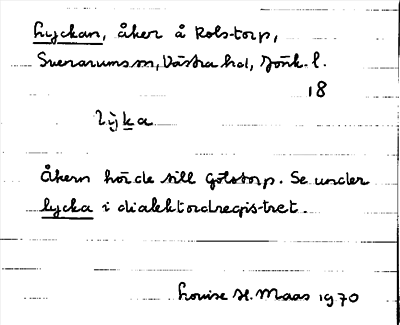 Lyckan, åker å Rolstorp,
Svenarums sn, Västra hd, Jönk. l.
18
lỳka
Åkern hörde till Golstorp. Se under
lycka i dialektordregistret.
Louise H. Maas 1970